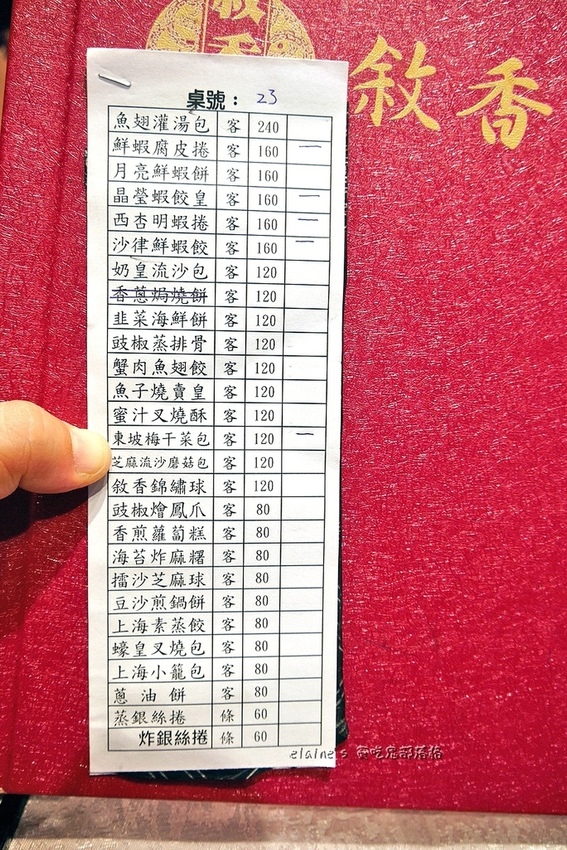 敘香
敘香
桌號： 23
魚翅灌湯包 客 240
鮮蝦腐皮捲 客 160 一
月亮鮮蝦餅 客 160
晶瑩蝦餃皇 客 160 一
西杏明蝦捲 客 160 一
沙律鮮蝦餃 客 160 一
奶皇流沙包 客 120
香蔥焗燒餅 客 120
韭菜海鮮餅 客 120
豉椒蒸排骨 客 120
蟹肉魚翅餃 客 120
魚子燒賣皇 客 120
蜜汁叉燒酥 客 120
東坡梅干菜包 客 120 一
芝麻流沙磨菇包 客 120
敘香錦繡球 客 120
豉椒燴鳳爪 客 80
香煎蘿蔔糕 客 80
海苔炸麻糬 客 80
擂沙芝麻球 客 80
豆沙煎鍋餅 客 80
上海素蒸餃 客 80
蠔皇叉燒包 客 80
上海小籠包 客 80
蔥油餅 客 80
蒸銀絲捲 條 60
炸銀絲捲 條 60
elaine's 愛吃鬼部落格